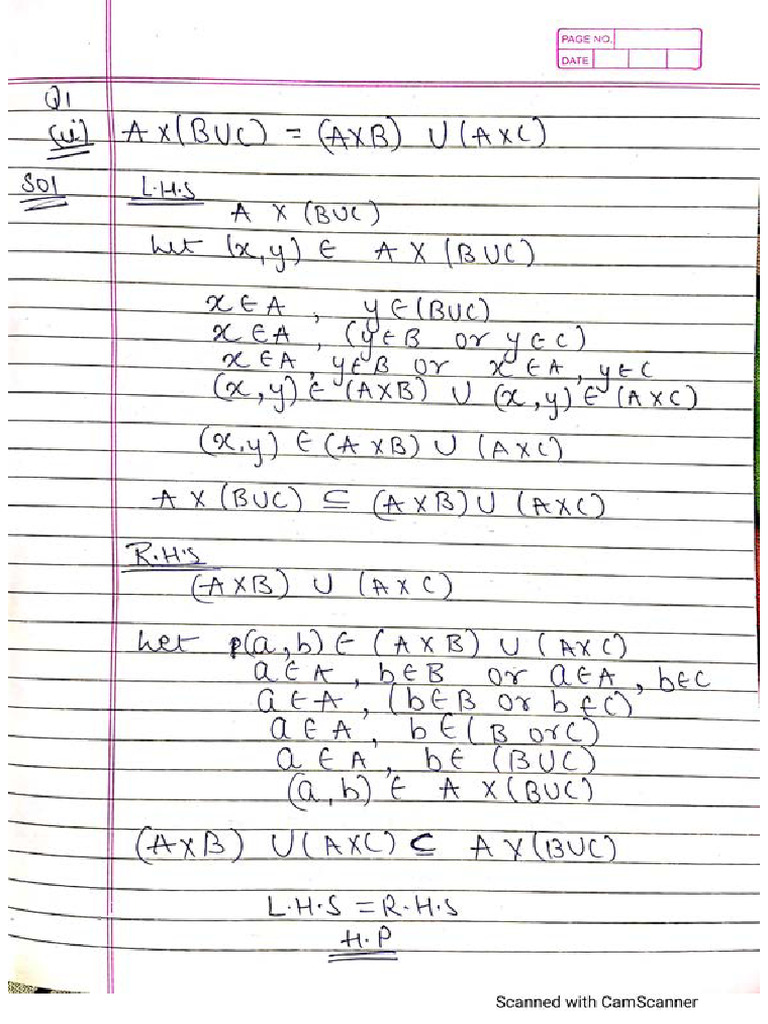 PAGE NO.
DATE
Q1
(ii) A X (B U C) = (A X B) U (A X C)
Sol L.H.S
A X (B U C)
Let (x, y) ∈ A X (B U C)
x ∈ A , y ∈ (B U C)
x ∈ A , (y ∈ B or y ∈ C)
x ∈ A, y ∈ B or x ∈ A, y ∈ C
(x, y) ∈ (A X B) U (x, y) ∈ (A X C)
(x, y) ∈ (A X B) U (A X C)
A X (B U C) ⊆ (A X B) U (A X C)
R.H.S
(A X B) U (A X C)
Let p(a, b) ∈ (A X B) U (A X C)
a ∈ A , b ∈ B or a ∈ A , b ∈ C
a ∈ A , (b ∈ B or b ∈ C)
a ∈ A , b ∈ (B or C)
a ∈ A , b ∈ (B U C)
(a, b) ∈ A X (B U C)
(A X B) U (A X C) ⊆ A X (B U C)
L.H.S = R.H.S
H.P
Scanned with CamScanner